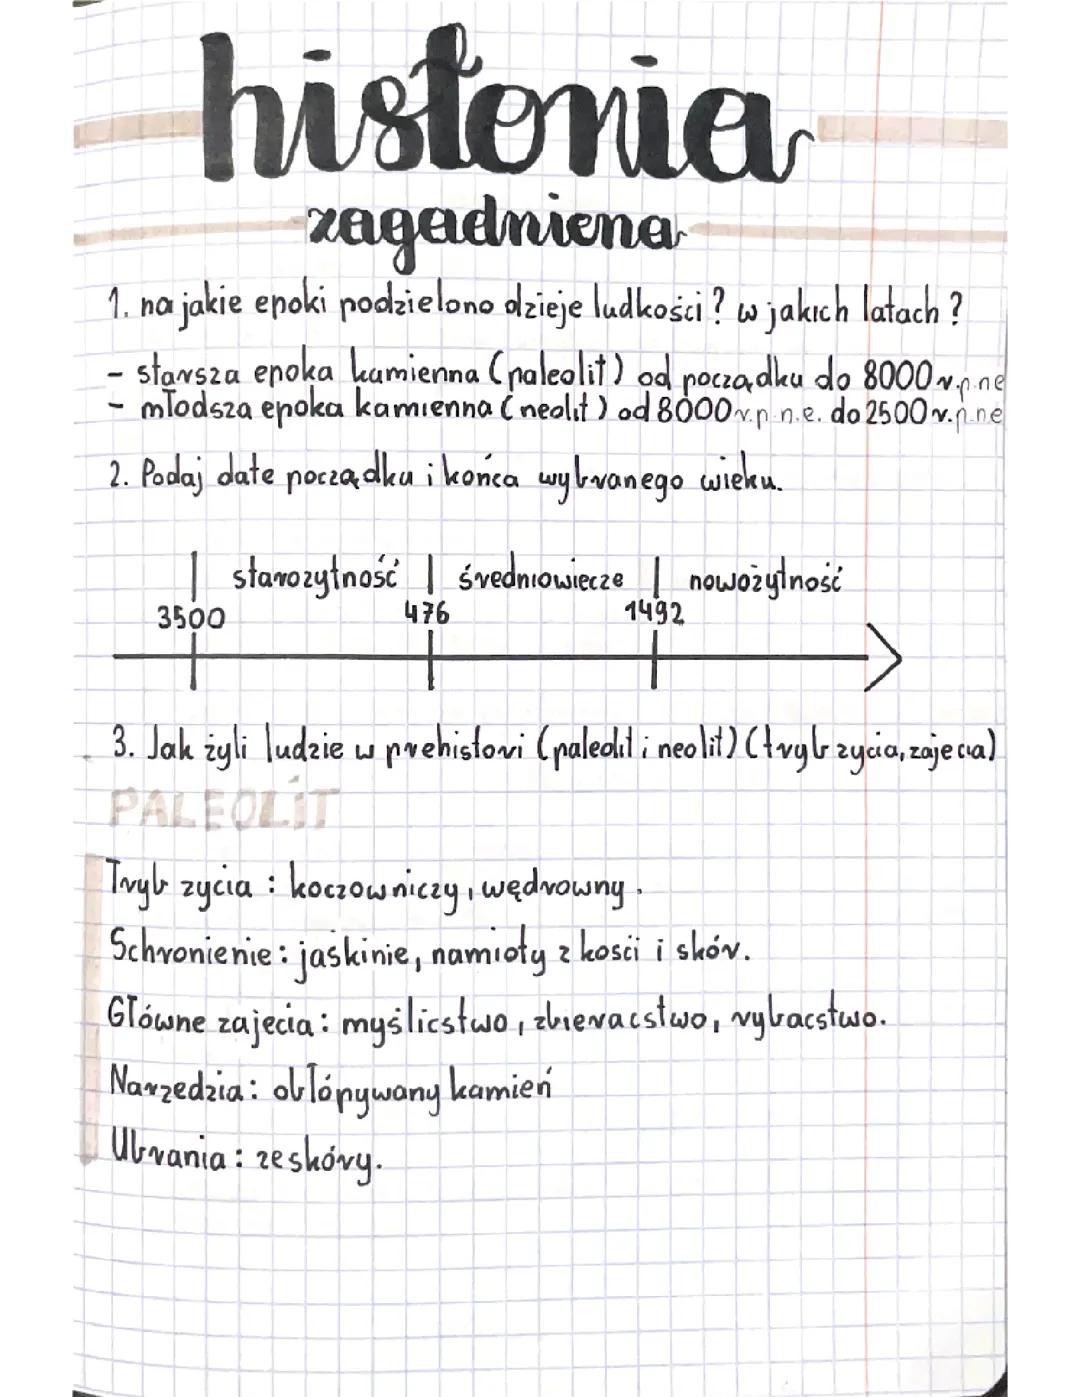 historia
zagadniena
1. na jakie epoki podzielono dzieje ludkości? w jakich latach?
- starsza epoka kamienna (paleolit) od początku do 8000 r.p.ne
- młodsza epoka kamienna (neolit) od 8000 r.p.n.e. do 2500 r.p.ne
2. Podaj date początku i końca wybranego wieku.
starozytność | średniowiecze | nowożytność
3500 476 1492
3. Jak żyli ludzie w prehistori (paleolit i neolit) (tryb zycia, zajecia)
PALEOLIT
Tryb zycia : koczowniczy, wędrowny.
Schronienie: jaskinie, namioty z kosci i skór.
Główne zajecia: myślicstwo, zbieracstwo, rybacstwo.
Narzedzia: obłópywany kamień
Ubrania: ze skóry.